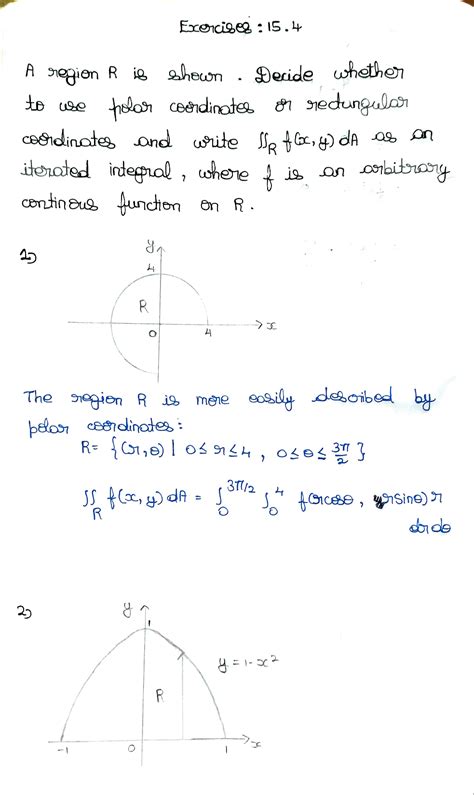 Exercises : 15.4
A region R is shown . Decide whether
to use polar coordinates or rectungular
coordinates and write ∬_R f(x,y) dA as an
iterated integral , where f is an arbitrary
continous function on R .
1)
y
4
R
0
4
x
The region R is more easily described by
polar coordinates :
R = { (r,θ) | 0 ≤ r ≤ 4 , 0 ≤ θ ≤ 3π/2 }
∬_R f(x,y) dA = ∫_0^{3π/2} ∫_0^4 f(rcosθ , rsinθ) r
dr dθ
2)
y
1
y = 1-x²
R
-1
0
1
x